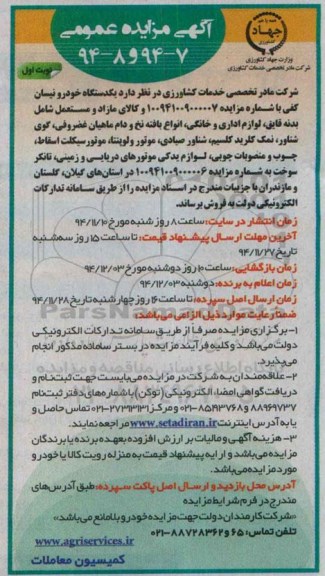 آگهی مزایده عمومی
۹۴-۷ و ۸-۹۴
جهاد
وزارت جهاد کشاورزی
شرکت مادر تخصصی خدمات کشاورزی
نوبت اول
شرکت مادر تخصصی خدمات کشاورزی در نظر دارد یکدستگاه خودرو نیسان
کفی با شماره مزایده ۱۰۰۹۴۱۰۰۹۰۰۰۰۰۷ و کالای مازاد و مستعمل شامل
بدنه قایق، لوازم اداری و خانگی، انواع بافته نخ و دام ماهیان غضروفی، گوی
شناور، نمک کلرید کلسیم، شناور صیادی، موتور و لوپنتا، موتور سیکلت اسقاط،
چوب و منصوبات چوبی، لوازم یدکی موتورهای دریایی و زمینی، تانکر
سوخت به شماره مزایده ۱۰۰۹۴۱۰۰۹۰۰۰۰۰۶ در استان‌های گیلان، گلستان
و مازندران با جزییات مندرج در اسناد مزایده را از طریق سامانه تدارکات
الکترونیکی دولت به فروش برساند.
زمان انتشار در سایت: ساعت ۸ روز شنبه مورخ ۹۴/۱۱/۱۰
آخرین مهلت ارسال پیشنهاد قیمت: تا ساعت ۱۵ روز سه‌شنبه
تاریخ ۹۴/۱۱/۲۷
زمان بازگشایی: ساعت ۱۰ روز دوشنبه مورخ ۹۴/۱۲/۰۳
زمان اعلام به برنده: دوشنبه ۹۴/۱۲/۰۳
زمان ارسال اصل سپرده: تا ساعت ۱۶ روز چهارشنبه تاریخ ۹۴/۱۱/۲۸
ضمنا رعایت موارد ذیل الزامی می‌باشد:
۱- برگزاری مزایده صرفا از طریق سامانه تدارکات الکترونیکی
دولت می‌باشد و کلیه فرآیند مزایده در بستر سامانه مذکور انجام
می‌پذیرد.
۲- علاقه‌مندان به شرکت در مزایده می‌بایست جهت ثبت‌نام و
دریافت گواهی امضاء الکترونیکی (توکن) با شماره‌های دفتر ثبت‌نام
۸۸۹۶۹۷۳۷ و ۸۵۱۹۳۷۶۸-۰۲۱ و مرکز ۲۷۳۱۳۱۳۱-۰۲۱ تماس حاصل و
یا به آدرس اینترنت www.setadiran.ir مراجعه نمایند.
۳- هزینه آگهی و مالیات بر ارزش افزوده بعهده برنده یا برندگان
مزایده می‌باشد و ارایه پیشنهاد قیمت به منزله رویت کالا یا خودرو
مورد مزایده می‌باشد.
آدرس محل بازدید و ارسال اصل پاکت سپرده: طبق آدرس‌های
مندرج در فرم شرایط مزایده
«شرکت کارمندان دولت جهت مزایده خودرو بلامانع می‌باشد»
تلفن تماس: ۶۵ و ۸۸۷۲۸۳۶۲-۰۲۱
www.agriservices.ir
کمیسیون معاملات